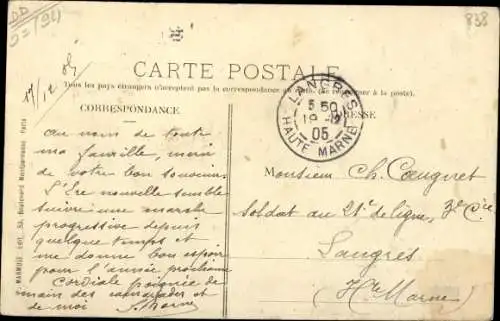 838
17/12 05
CARTE POSTALE
Tous les pays étrangers n'acceptent pas la correspondance au recto. (Se renseigner à la poste).
CORRESPONDANCE
ADRESSE
LANGRES
5 50
19
05
HAUTE MARNE
au nom de toute
ma famille, merci
de votre bon souvenir.
L'Ere nouvelle semble
suivre une marche
progressive depuis
quelque temps et
me donne bon espoir
pour l'année prochaine
Cordiale poignée de
main des camarades et
de moi
Monsieur Ch.
Soldat au 21e de ligne, 3e Cie
Langres
Hte Marne
MARMUSE, Edit. 53, Boulevard Montparnasse Paris